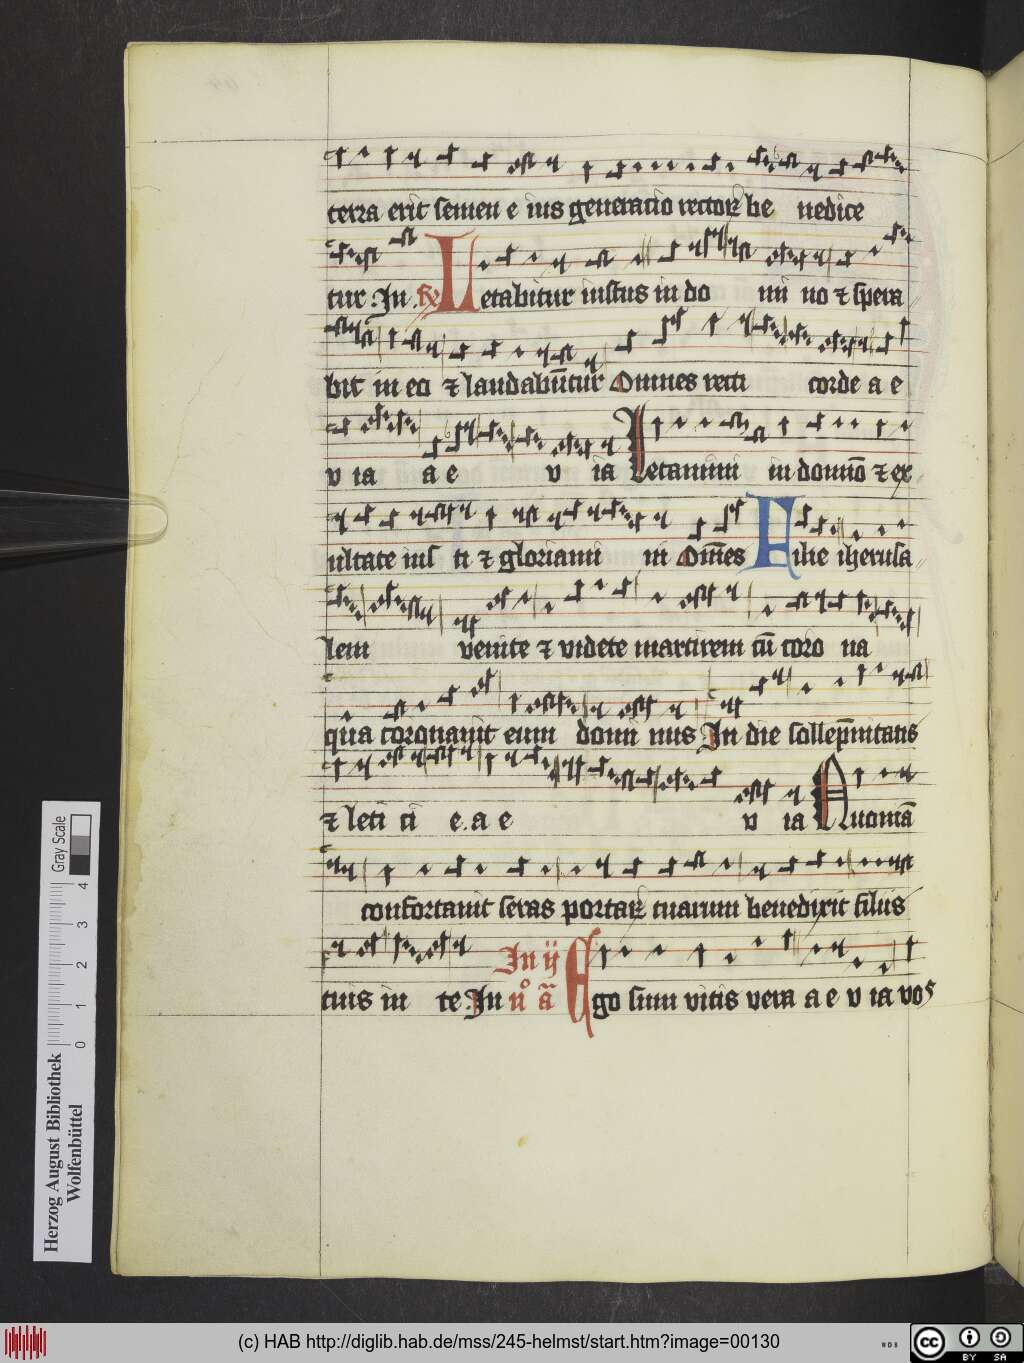 terra erit semen e ius generacio rectoꝝ be nedice
tur. In. ℟ Letabitur iustus in do mi no ⁊ spera
bit in eo ⁊ laudabūtur Omnes recti corde a e
v ia a e v ia Letamini in domīo ⁊ ex
ultate ius ti ⁊ gloriami ni Om̄es Filie iherusa
lem venite ⁊ videte martirem cū coro na
qua coronauit eum domi nus In die sollep̄nitatis
⁊ leti ci e. a e v ia Quoniā
confortauit seras portaꝝ tuarum benedixit filiis
In ij
tuis in te In n° ā Ego sum vitis vera a e v ia vos
Gray Scale
4 3 2 1 0
Herzog August Bibliothek
Wolfenbüttel
(c) HAB http://diglib.hab.de/mss/245-helmst/start.htm?image=00130
WDB
cc BY SA